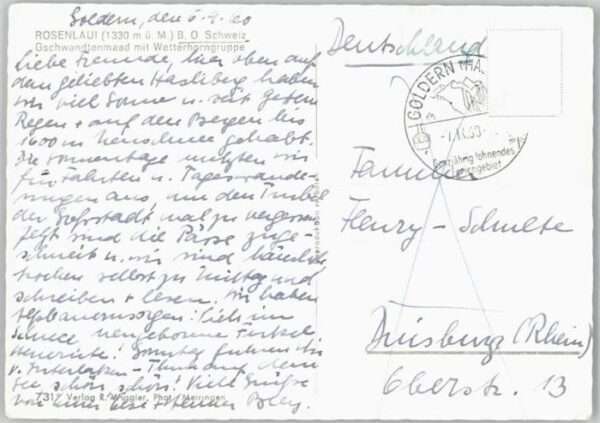 Goldern, den 6.9.60
ROSENLAUI (1330 m ü. M.) B. O. Schweiz
Gschwandtenmaad mit Wetterhorngruppe
Liebe Freunde, hier oben auf
dem geliebten Hasliberg haben
wir viel Sonne u. seit gestern
Regen + auf den Bergen bis
1600 m Neuschnee gehabt.
Die Sonnentage nutzten wir
für Fahrten u. Tageswande-
rungen aus, um den Trubel
der Großstadt mal zu vergessen
Jetzt sind die Pässe zuge-
schneit u. wir sind häuslich
kochen selbst zu Mittag und
schreiben + lesen. Wir haben
im
Schnee neugeborene Ferkel
Sonntag fuhren wir
v. Interlaken - Thun auf dem
See schön, schön! Viele Grüße
von
7317 Verlag R. Wuggler, Phot. Meiringen
Deutschland
GOLDERN
Familie
Fleury - Schulte
Duisburg (Rhein)
Oberstr. 13